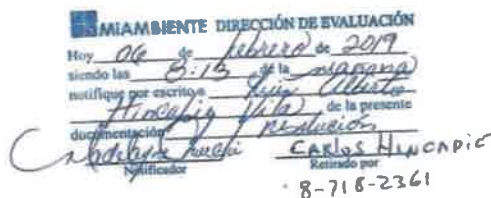 MIAMBIENTE DIRECCIÓN DE EVALUACIÓN
Hoy 06 de febrero de 2019
siendo las 8:15 de la mañana
notifique por escrito a Luis Alberto
Hincapié Vila de la presente
documentación resolución
CARLOS HINCAPIÉ
Notificador Retirado por
8-718-2361